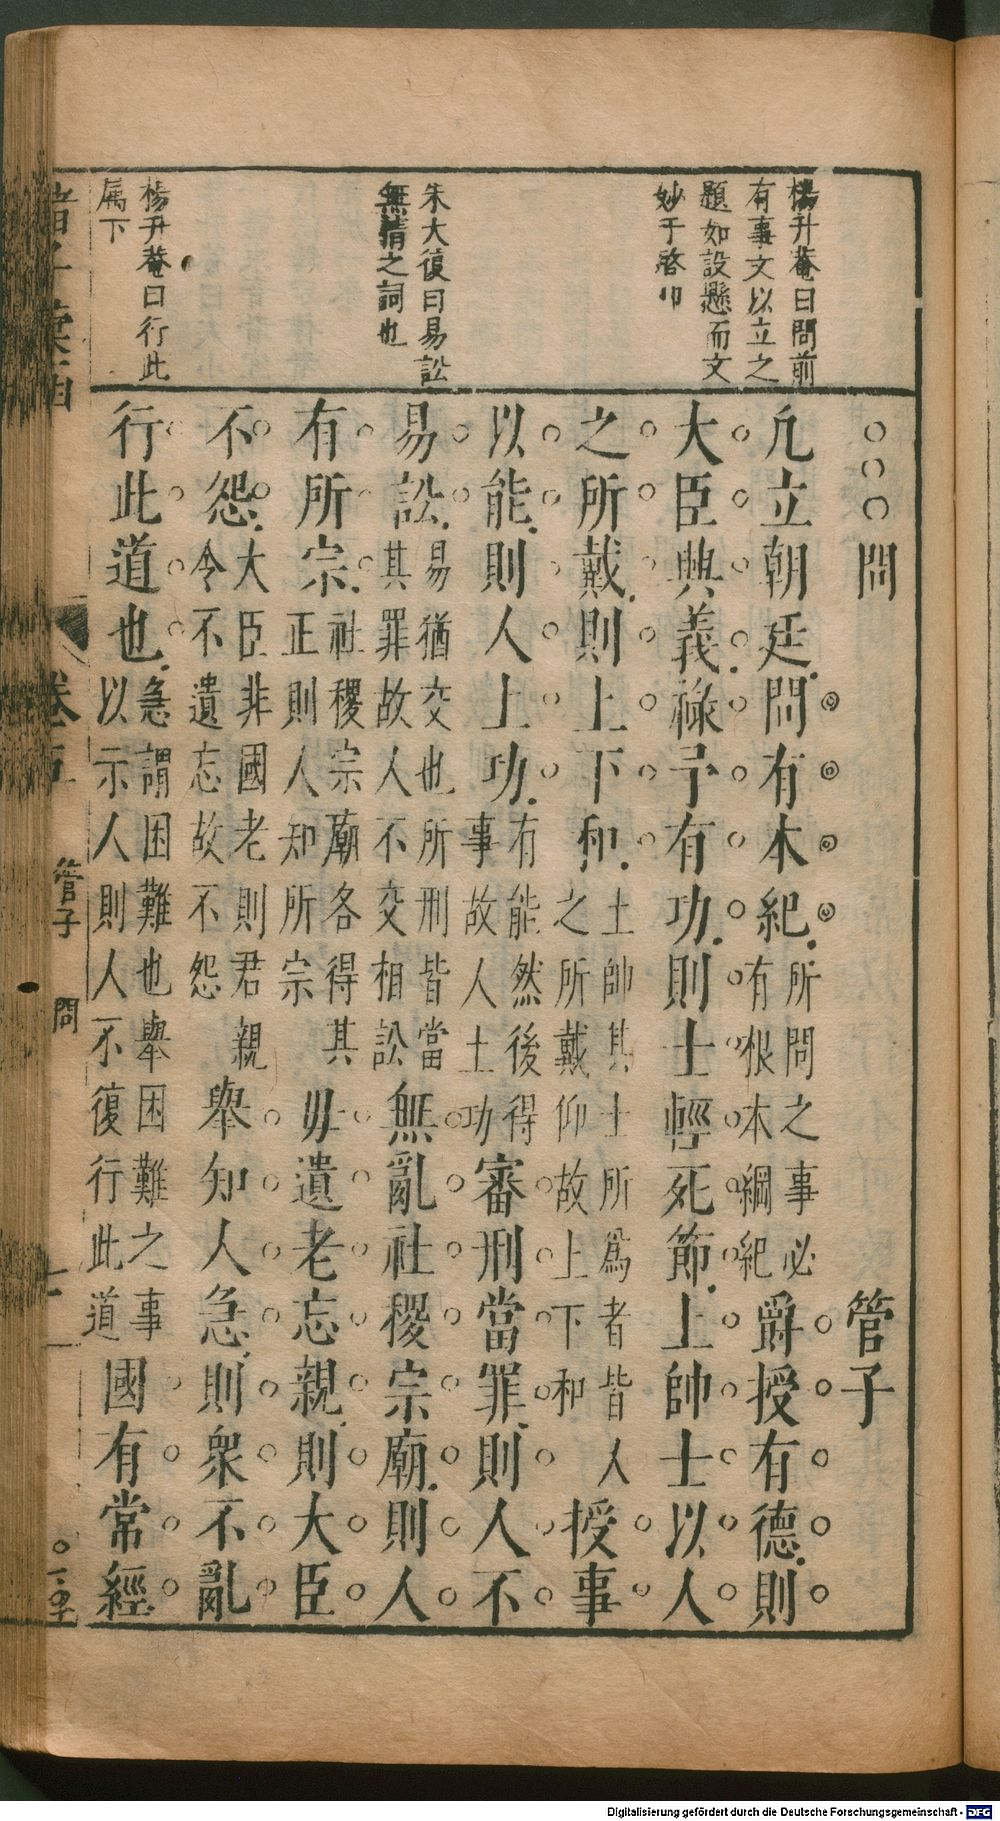 楊升菴曰問前
有事文以立之
題如設懸而文
妙于啓口
朱大復曰易訟
無情之詞也
楊升菴曰行此
属下
○○○問 管子
凢立朝廷問有本紀所問之事必有根本綱紀爵授有德則
大臣興義祿予有功則士輕死節上帥士以人
之所戴則上下和上帥其士所爲者皆人之所戴仰故上下和授事
以能則人上功有能然後得事故人上功審刑當罪則人不
易訟易猶交也所刑皆當其罪故人不交相訟無亂社稷宗廟則人
有所宗社稷宗廟各得其正則人知所宗毋遺老忘親則大臣
不怨大臣非國老則君親令不遺忘故不怨舉知人急則衆不亂
行此道也急謂困難也舉困難之事以示人則人不復行此道國有常經
諸子彙函 卷五 管子 問
Digitalisierung gefördert durch die Deutsche Forschungsgemeinschaft - DFG